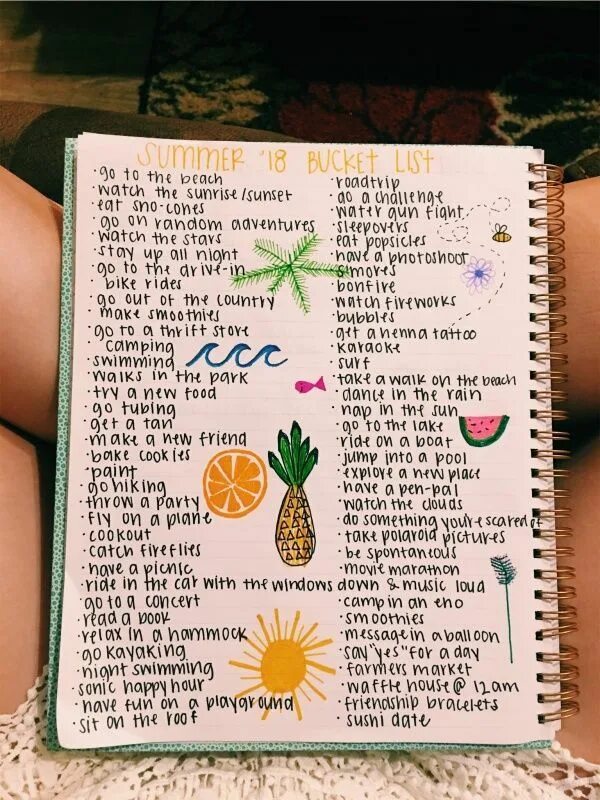 SUMMER '18 BUCKET LIST
·go to the beach
·watch the sunrise/sunset
·eat sno-cones
·go on random adventures
·watch the stars
·stay up all night
·go to the drive-in
·bike rides
·go out of the country
·make smoothies
·go to a thrift store
·camping
·swimming
·walks in the park
·try a new food
·go tubing
·get a tan
·make a new friend
·bake cookies
·paint
·go hiking
·throw a party
·fly on a plane
·cookout
·catch fireflies
·have a picnic
·ride in the car with the windows down & music loud
·go to a concert
·read a book
·relax in a hammock
·go kayaking
·night swimming
·sonic happy hour
·have fun on a playground
·sit on the roof
·roadtrip
·do a challenge
·water gun fight
·sleepovers
·eat popsicles
·have a photoshoot
·s'mores
·bonfire
·watch fireworks
·bubbles
·get a henna tattoo
·karaoke
·surf
·take a walk on the beach
·dance in the rain
·nap in the sun
·go to the lake
·ride on a boat
·jump into a pool
·explore a new place
·have a pen-pal
·watch the clouds
·do something you're scared of
·take polaroid pictures
·be spontaneous
·movie marathon
·camp in an eno
·smoothies
·message in a balloon
·say "yes" for a day
·farmers market
·waffle house @ 12am
·friendship bracelets
·sushi date